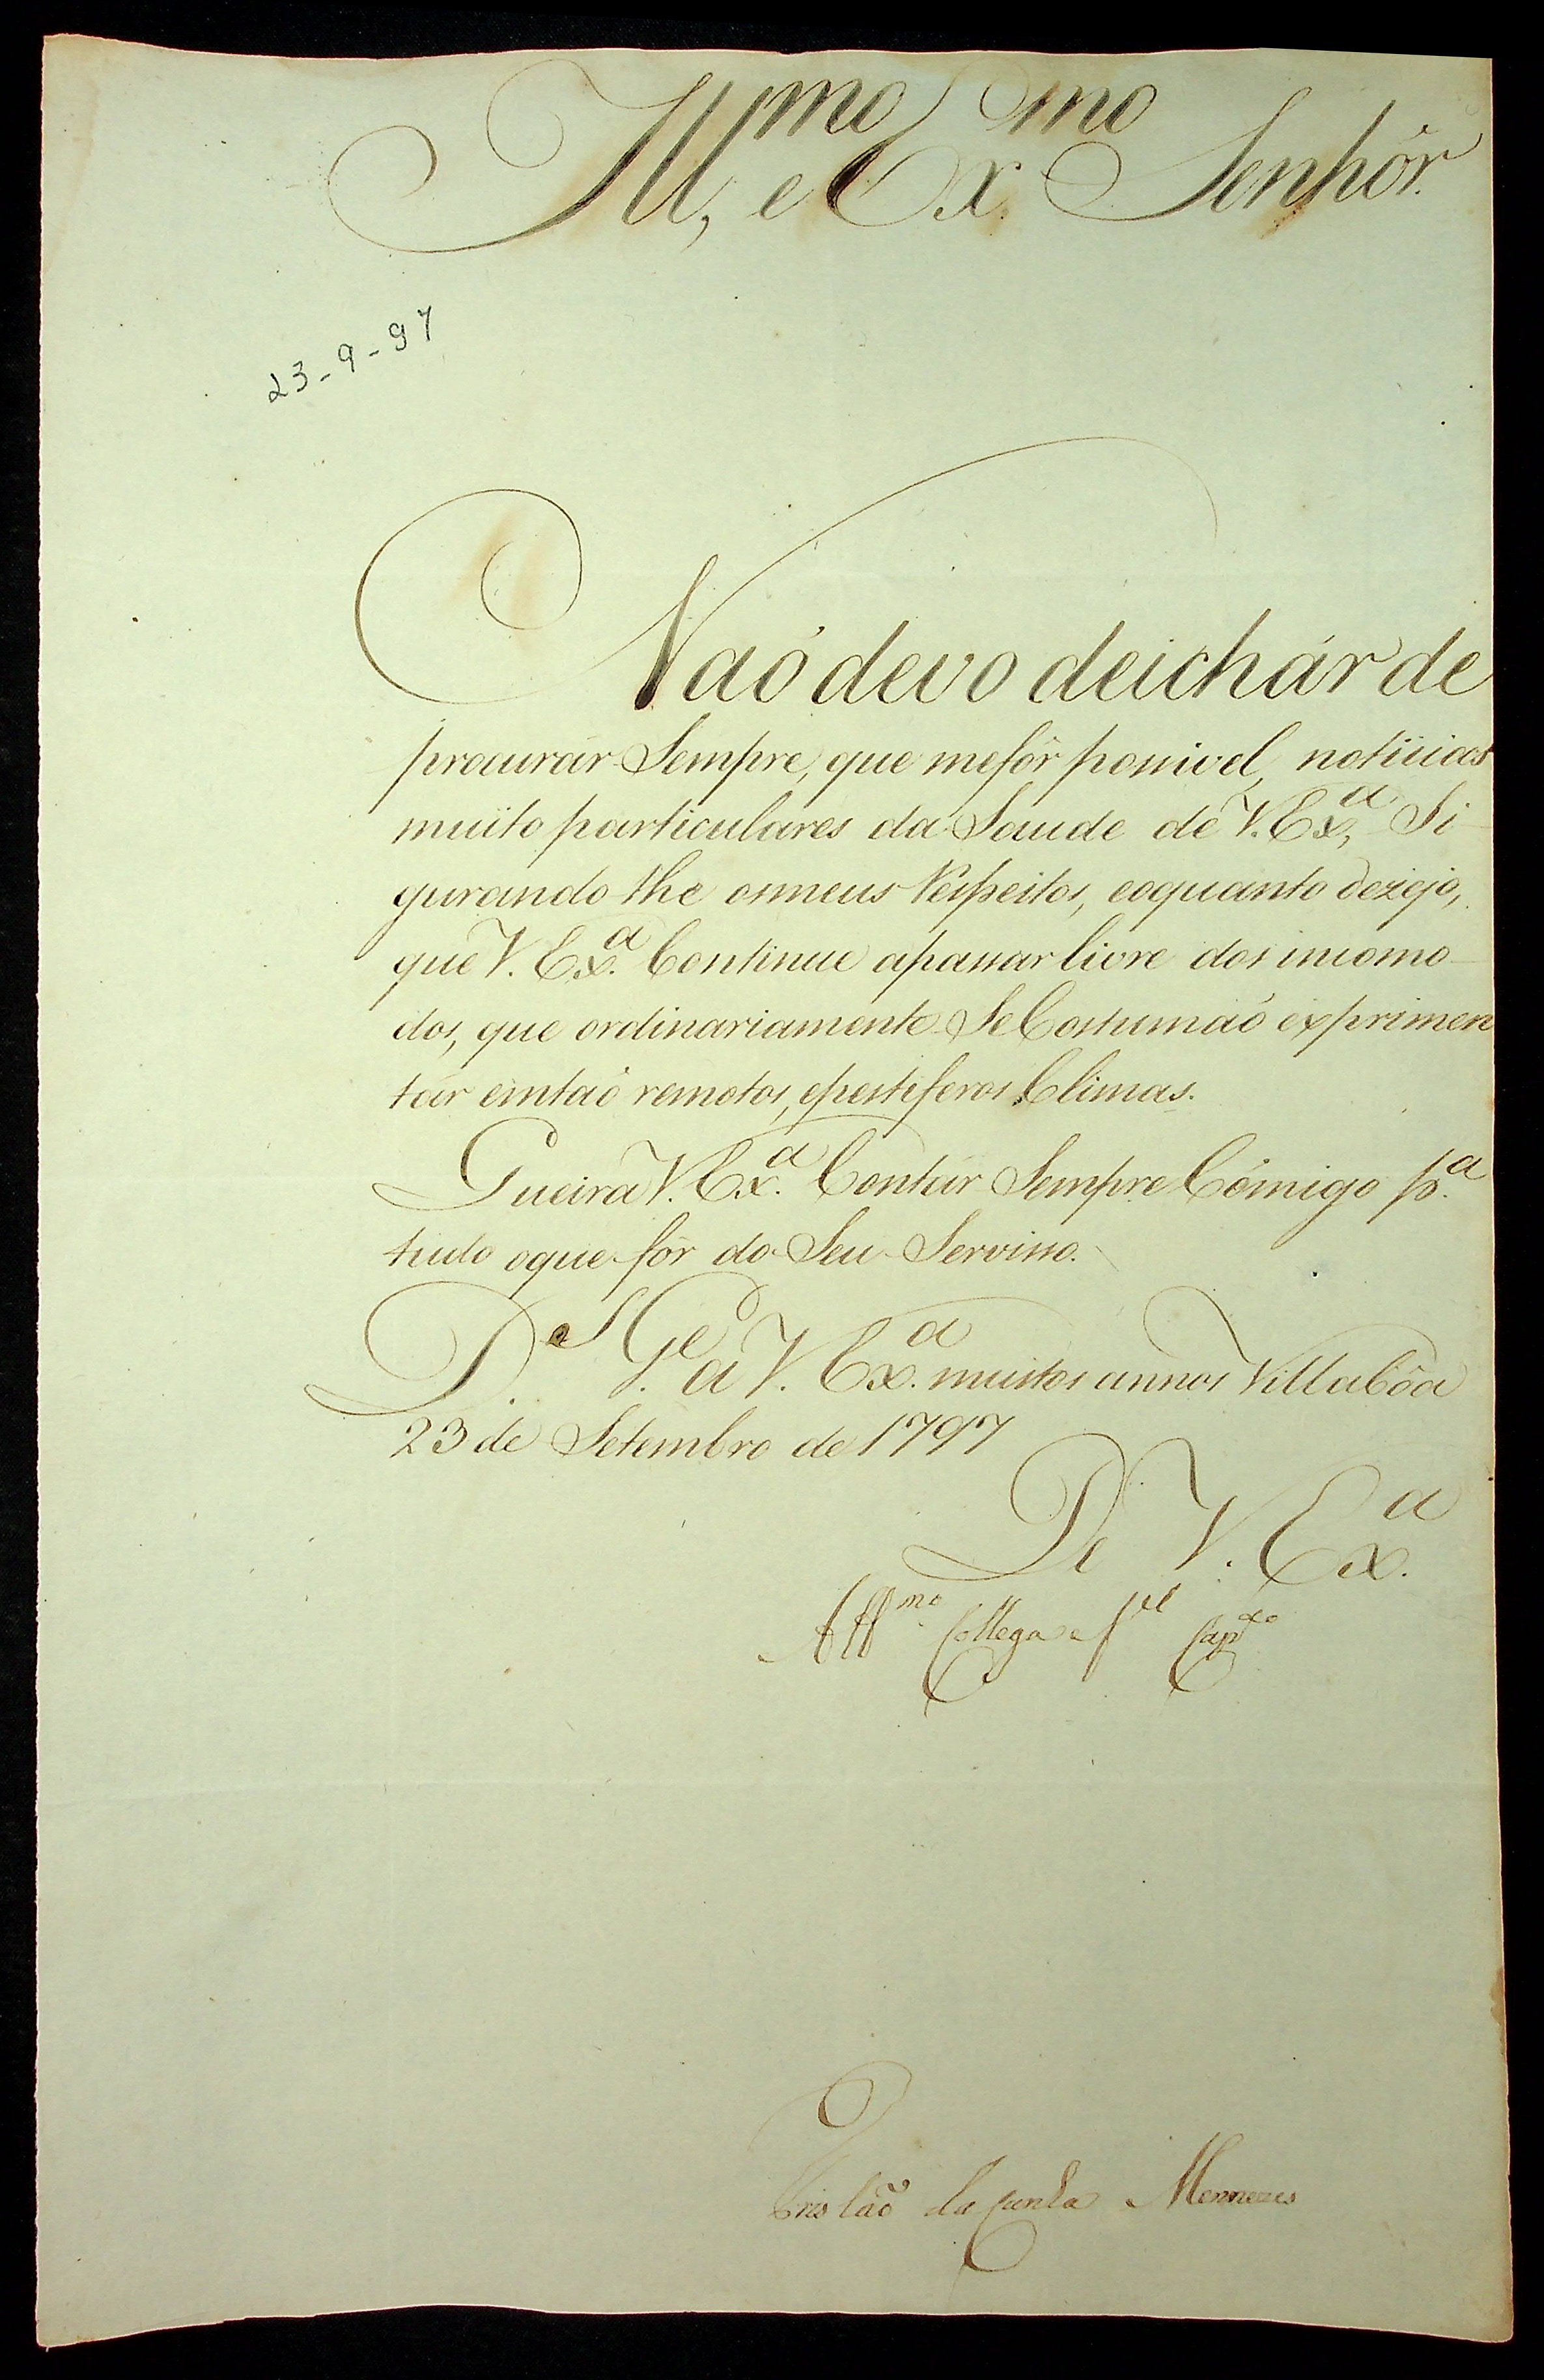 Ill.mo, e Ex.mo Senhôr.
23-9-97
Naó devo deichár de
procurár Sempre, que mefôr possivel, noticias
muito particulares da Saude de V. Ex.a, Si-
gurando lhe osmeus Respeitos, eoquanto dezejo,
que V. Ex.a Continue apassar livre dos incomo-
dos, que ordinariamente Se Costumaó exprimen
tár emtaó remotos, epestiferos Climas.
Queira V. Ex.a Contár Sempre Cómigo p.a
tudo oque fôr do Seu Servisso.
D.s G.e a V. Ex.a muitos annos Villa Bôa
23 de Setembro de 1797
De V. Ex.a
Aff.mo Collega e fiel Cap.do
Tristaõ da Cunha Menezes